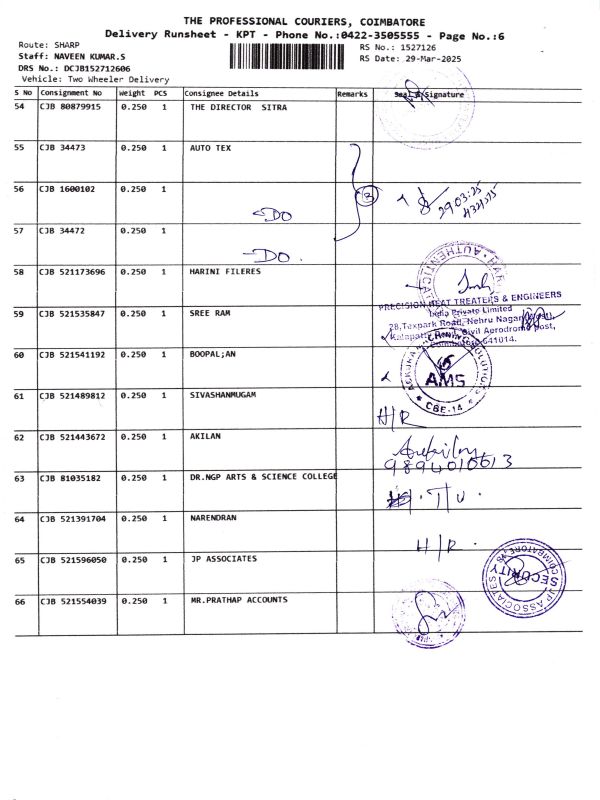 THE PROFESSIONAL COURIERS, COIMBATORE
Delivery Runsheet - KPT - Phone No.:0422-3505555 - Page No.:6
Route: SHARP
RS No.: 1527126
Staff: NAVEEN KUMAR.S
RS Date: 29-Mar-2025
DRS No.: DCJB152712606
Vehicle: Two Wheeler Delivery
S No Consignment No Weight PCS Consignee Details Remarks Seal & Signature
54 CJB 80879915 0.250 1 THE DIRECTOR SITRA
55 CJB 34473 0.250 1 AUTO TEX
56 CJB 1600102 0.250 1
DO
29.03.25
57 CJB 34472 0.250 1
DO
58 CJB 521173696 0.250 1 HARINI FILERES
AUTHENTICAL
PRECISION HEAT TREATERS & ENGINEERS
India Private Limited
59 CJB 521535847 0.250 1 SREE RAM
28,Texpark Road, Nehru Nagar
Civil Aerodrome Post,
641014.
60 CJB 521541192 0.250 1 BOOPAL;AN
AMS
CBE-14
61 CJB 521489812 0.250 1 SIVASHANMUGAM
H/R
62 CJB 521443672 0.250 1 AKILAN
9894010613
63 CJB 81035182 0.250 1 DR.NGP ARTS & SCIENCE COLLEGE
64 CJB 521391704 0.250 1 NARENDRAN
H/R
65 CJB 521596050 0.250 1 JP ASSOCIATES
JP ASSOCIATES
COIMBATORE
SECURITY
66 CJB 521554039 0.250 1 MR.PRATHAP ACCOUNTS